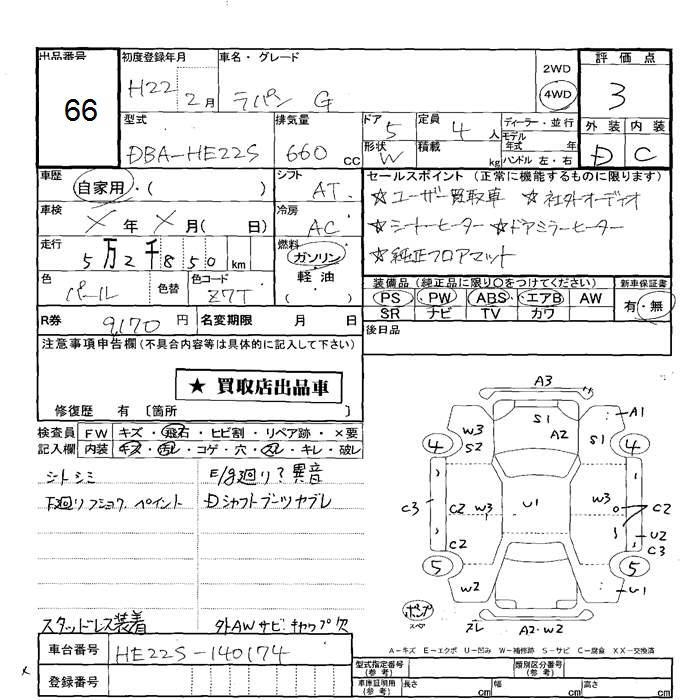 出品番号 66
初度登録年月 H22 2月
車名・グレード ラパン G
2WD
4WD
評価点 3
外装 内装
D C
型式 DBA-HE22S
排気量 660 cc
ドア 5
形状 W
定員 4 人
積載 kg
ディーラー・並行
モデル年式 年
ハンドル 左・右
車歴 自家用・( )
シフト AT
車検 X年X月( 日)
冷房 AC
走行 5万2千850km
燃料 ガソリン
軽油
( )
色 パール 色替 色コード Z7T
R券 9,170円 名変期限 月 日
セールスポイント(正常に機能するものに限ります)
☆ユーザー買取車 ☆社外オーディオ
☆シートヒーター ☆ドアミラーヒーター
☆純正フロアマット
装備品(純正品に限り○をつけてください)
PS PW ABS エアB AW
SR ナビ TV カワ
新車保証書
有・無
後日品
注意事項申告欄(不具合内容等は具体的に記入して下さい)
★ 買取店出品車
修復歴 有〔箇所 〕
検査員 FW キズ・飛石・ヒビ割・リペア跡・×要
記入欄 内装 キズ・汚レ・コゲ・穴・スレ・キレ・破レ
シートシミ
E/g廻り?異音
下廻りフショク、ペイント
Dシャフトブーツヤブレ
スタッドレス装着
外AWサビ・キャップ欠
車台番号 HE22S-140174
登録番号
A3
S1
A2
W3
S2
S1
A1
4
4
C3
C2
W3
U1
W3
C2
C2
U2
C3
5
5
W2
U1
ポンプ
スペア
スレ
A2・W2
A-キズ E-エクボ U-凹み W-補修跡 S-サビ C-腐食 XX-交換済
型式指定番号(参考)
類別区分番号(参考)
車庫証明用(参考) 長さ cm 幅 cm 高さ cm
x